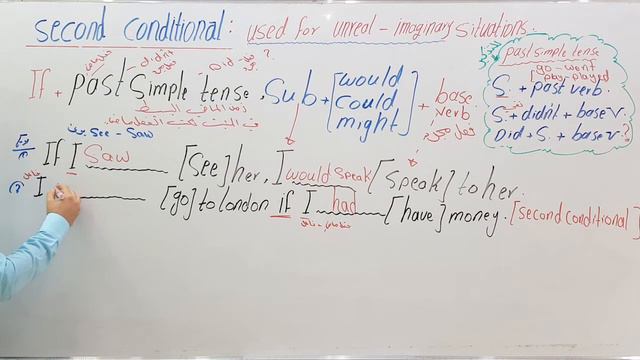 second conditional: used for unreal - imaginary situations.
didn't
Did
?
If + past simple tense , Sub + [would could might] + base verb
زمن الماضي البسيط
فعل مجرد
past simple tense
go - went
play - played
S. + past verb.
S. + didn't + base v.
Did + S. + base v ?
see - saw
If I saw [see] her, I would speak [speak] to her.
I [go] to london if I had [have] money. [second conditional]